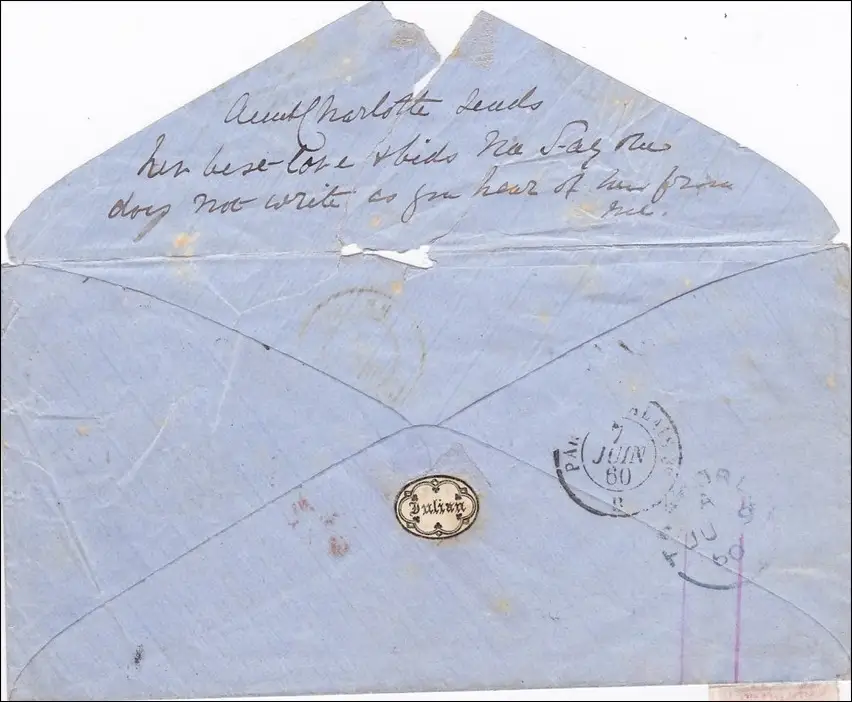 Aunt Charlotte sends
her best love & bids me say she
does not write as you hear of her from
me.
7
JUIN
60
Julian